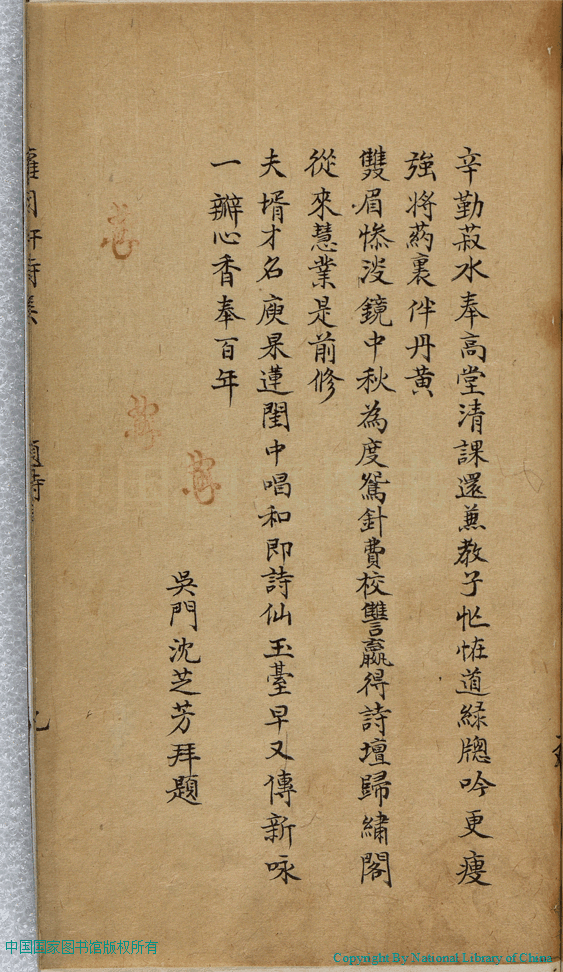 辛勤菽水奉高堂清課還蕙教子忙恠道綠牕吟更瘦
強将葯裹伴丹黄
雙眉惨淡鏡中秋為度鴛針費校讐贏得詩壇歸繡閣
從來慧業是前修
夫壻才名庾杲蓮閨中唱和即詩仙玉臺早又傳新咏
一瓣心香奉百年
吳門沈芝芳拜題
題詩
中国国家图书馆版权所有
Copyright By National Library of China